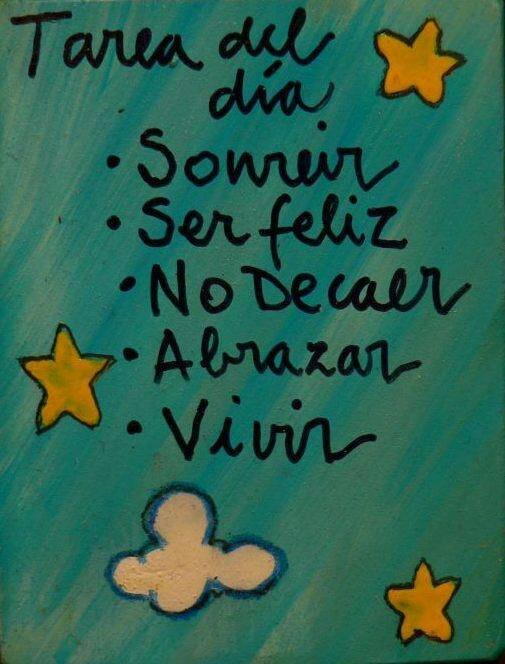 Tarea del
día
• Sonreir
• Ser feliz
• No Decaer
• Abrazar
• Vivir